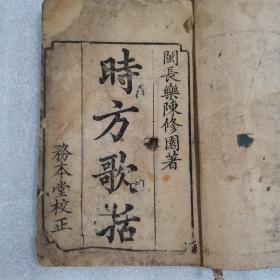 閩長樂陳修園著
時方歌括
務本堂校正